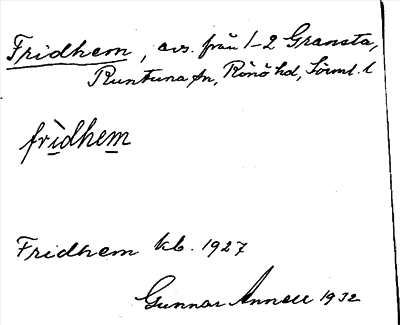 Fridhem, avs. från 1-2 Gransta,
Runtuna sn, Rönö hd, Sörml. l
frìdhem
Fridhem kb. 1927
Gunnar Annell 1932